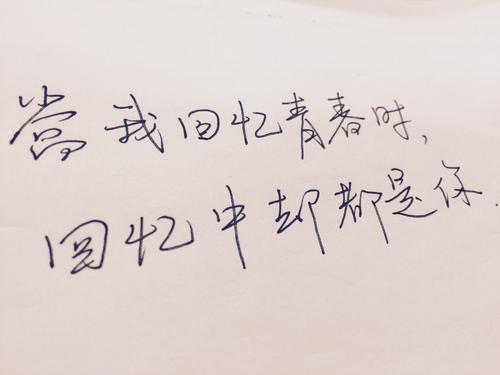 當我回忆青春时,
回忆中却都是你.